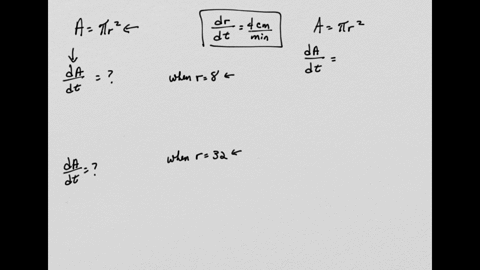 A = πr² ←
dr/dt = 4 cm/min
A = πr²
↓
dA/dt = ?
when r = 8 ←
dA/dt =
dA/dt = ?
when r = 32 ←